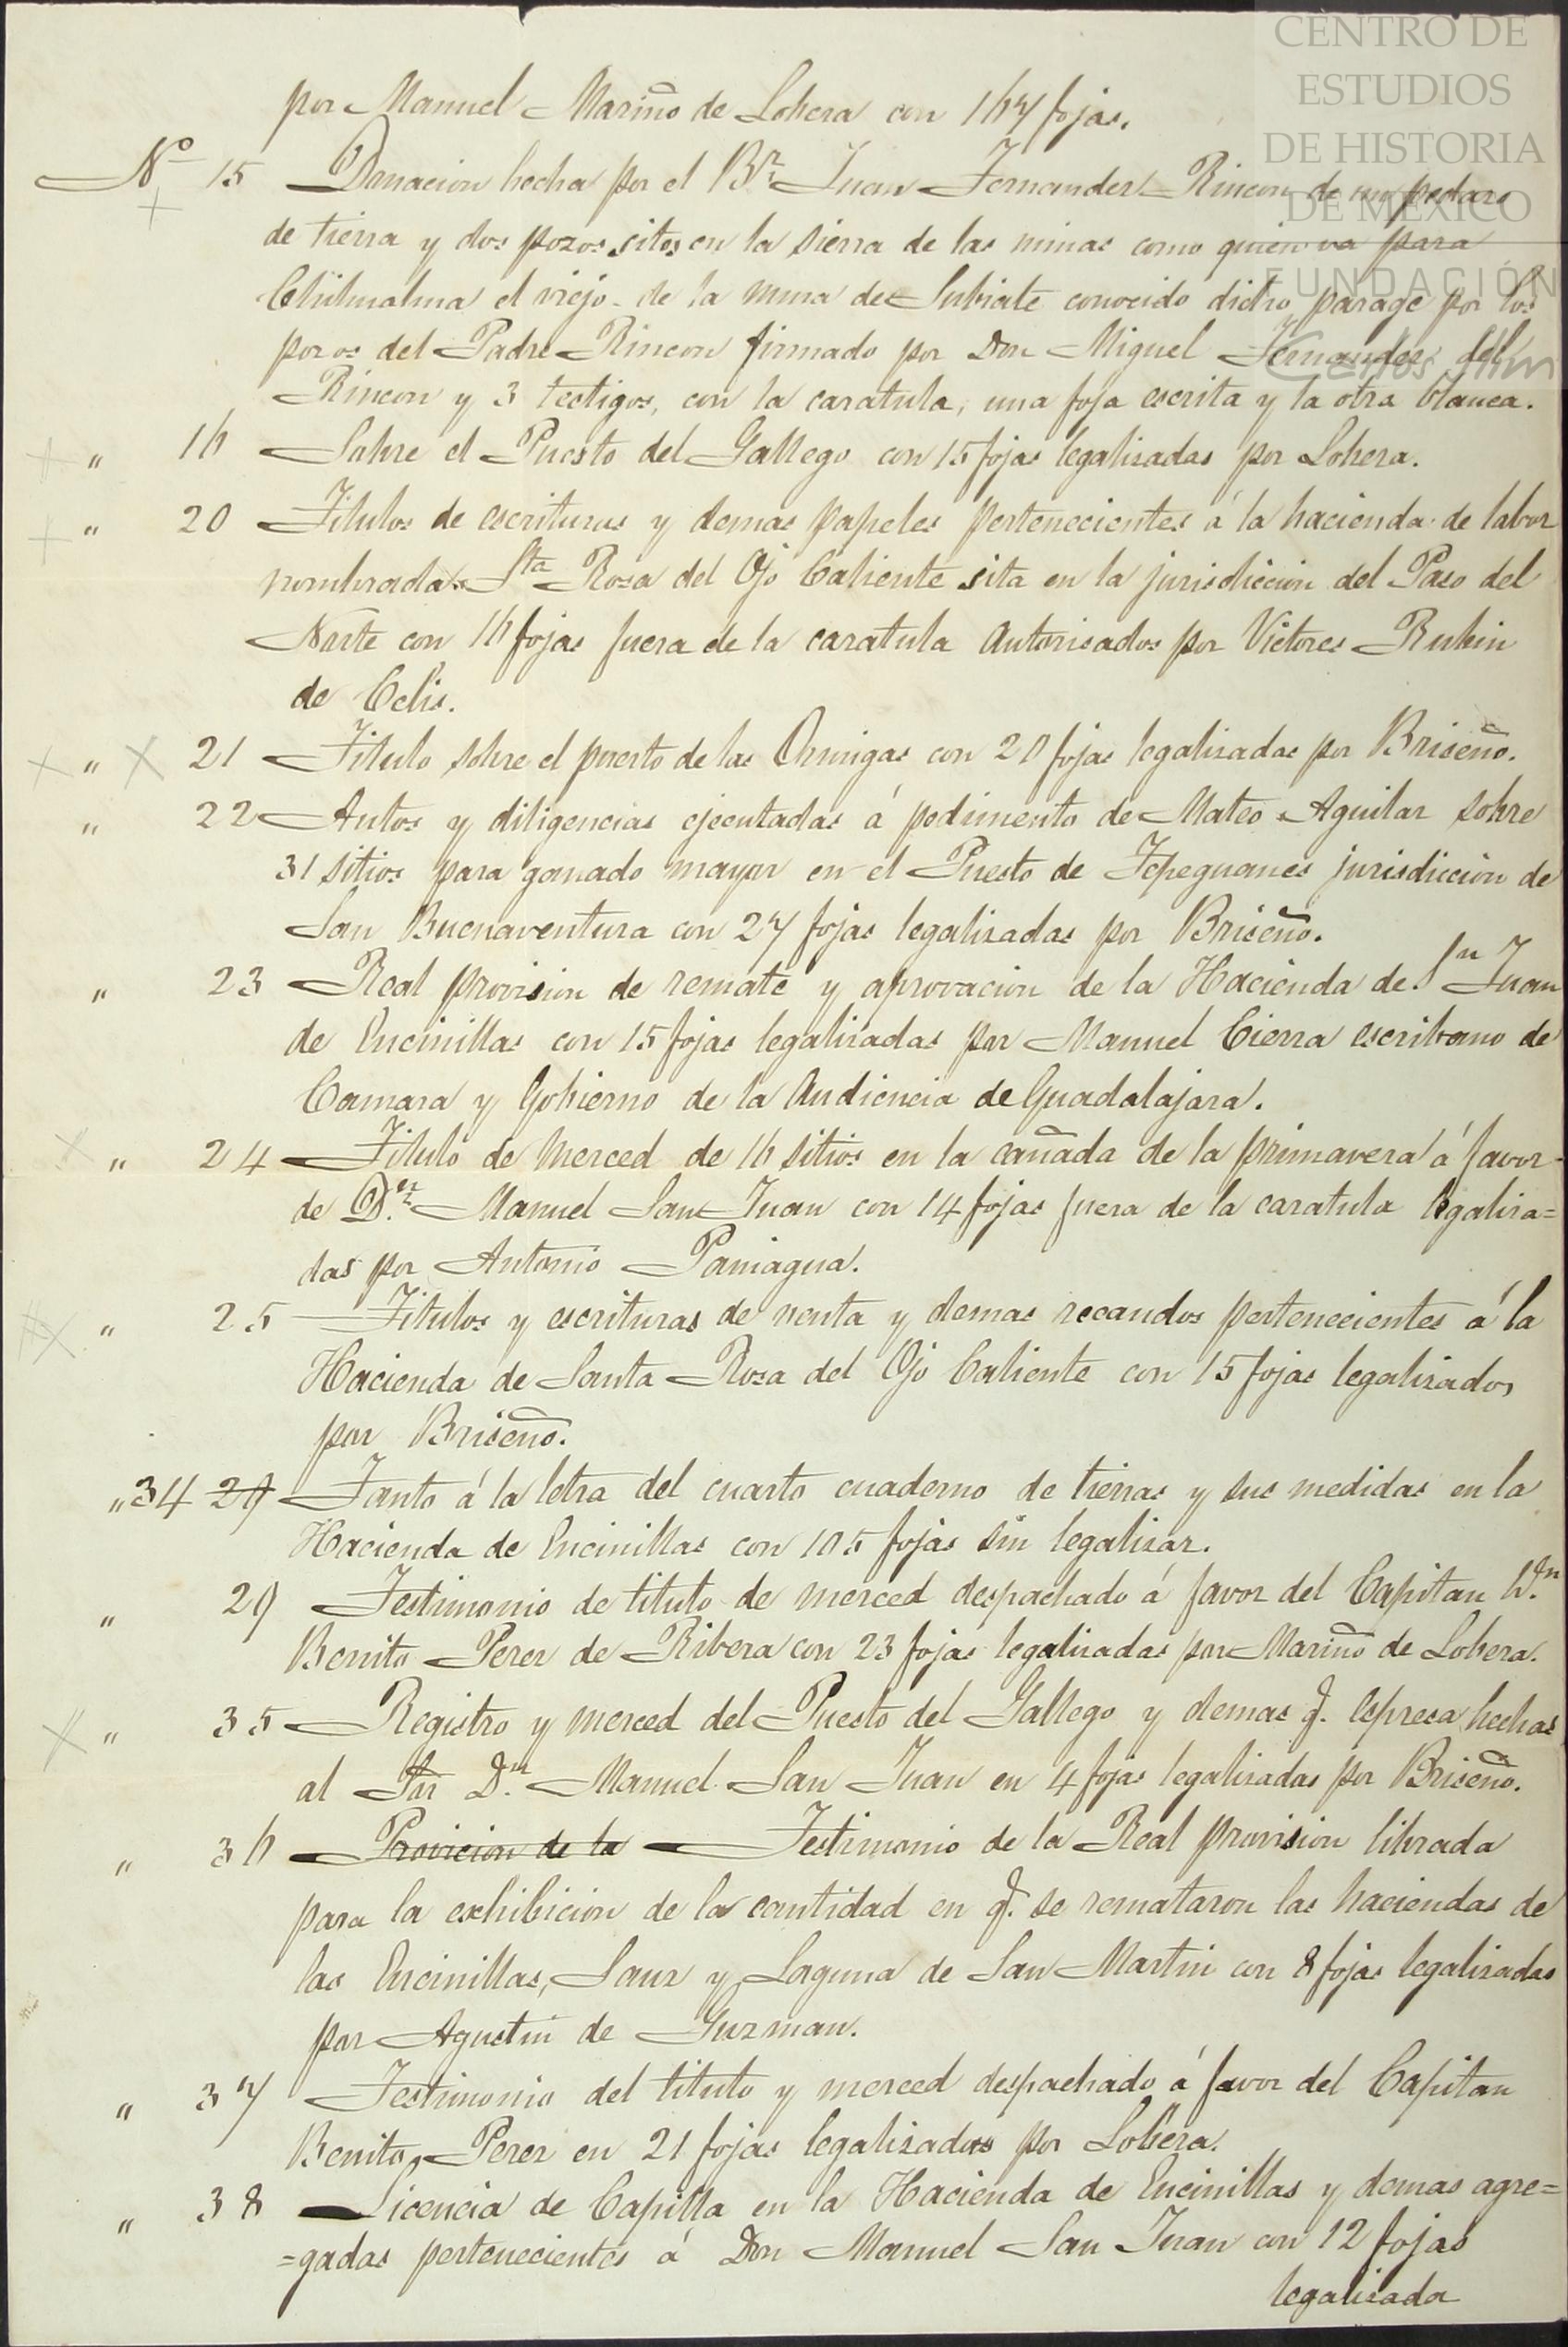 CENTRO DE
ESTUDIOS
DE HISTORIA
DE MÉXICO
FUNDACIÓN
Carlos Slim
por Manuel Mariño de Lobera con 167 fojas.
Nº 15 Donacion hecha por el Br. Juan Fernandez Rincon de un pedazo
de tierra y dos pozos sitos en la sierra de las minas como quien va para
el viejo de la mina de Subiate conocido dicho parage por los
pozos del Padre Rincon firmado por Don Miguel Fernandez del
Rincon y 3 testigos, con la caratula, una foja escrita y la otra blanca.
" 16 Sobre el Puesto del Gallego con 15 fojas legalizadas por Lobera.
" 20 Titulos de escrituras y demas papeles pertenecientes á la hacienda de labor
nombrada Sta Rosa del Ojo Caliente sita en la jurisdiccion del Paso del
Norte con 16 fojas fuera de la caratula Autorisados por Victores Rubin
de Celis.
" 21 Titulo sobre el puerto de las Ormigas con 20 fojas legalizadas por Briseño.
" 22 Autos y diligencias ejecutadas á pedimento de Mateo Aguilar sobre
31 sitios para ganado mayor en el Puesto de Tepeguanes jurisdiccion de
San Buenaventura con 27 fojas legalizadas por Briseño.
" 23 Real provision de remate y aprovacion de la Hacienda de Sn Juan
de Encinillas con 15 fojas legalizadas por Manuel Cierra escribano de
Camara y Gobierno de la Audiencia de Guadalajara.
" 24 Titulo de Merced de 16 sitios en la cañada de la primavera á favor
de Dn. Manuel San Juan con 14 fojas fuera de la caratula legaliza=
das por Antonio Paniagua.
" 25 Titulos y escrituras de venta y demas recaudos pertenecientes á la
Hacienda de Santa Rosa del Ojo Caliente con 15 fojas legalizados
por Briseño.
" 34 29 Tanto á la letra del cuarto cuaderno de tierras y sus medidas en la
Hacienda de Encinillas con 105 fojas sin legalizar.
" 29 Testimonio de titulo de merced despachado á favor del Capitan Dn.
Benito Perez de Ribera con 23 fojas legalizadas por Mariño de Lobera.
" 35 Registro y merced del Puesto del Gallego y demas q. espresa hechas
al Sor Dn. Manuel San Juan en 4 fojas legalizadas por Briseño.
" 36 Provicion de la Testimonio de la Real provision librada
para la exhibicion de la cantidad en q. se remataron las haciendas de
las Encinillas, Sauz y Laguna de San Martin con 8 fojas legalizadas
por Agustin de Guzman.
" 37 Testimonio del titulo y merced despachado á favor del Capitan
Benito Perez en 21 fojas legalizadas por Lobera.
" 38 Licencia de Capilla en la Hacienda de Encinillas y demas agre=
=gadas pertenecientes á Don Manuel San Juan con 12 fojas
legalizada